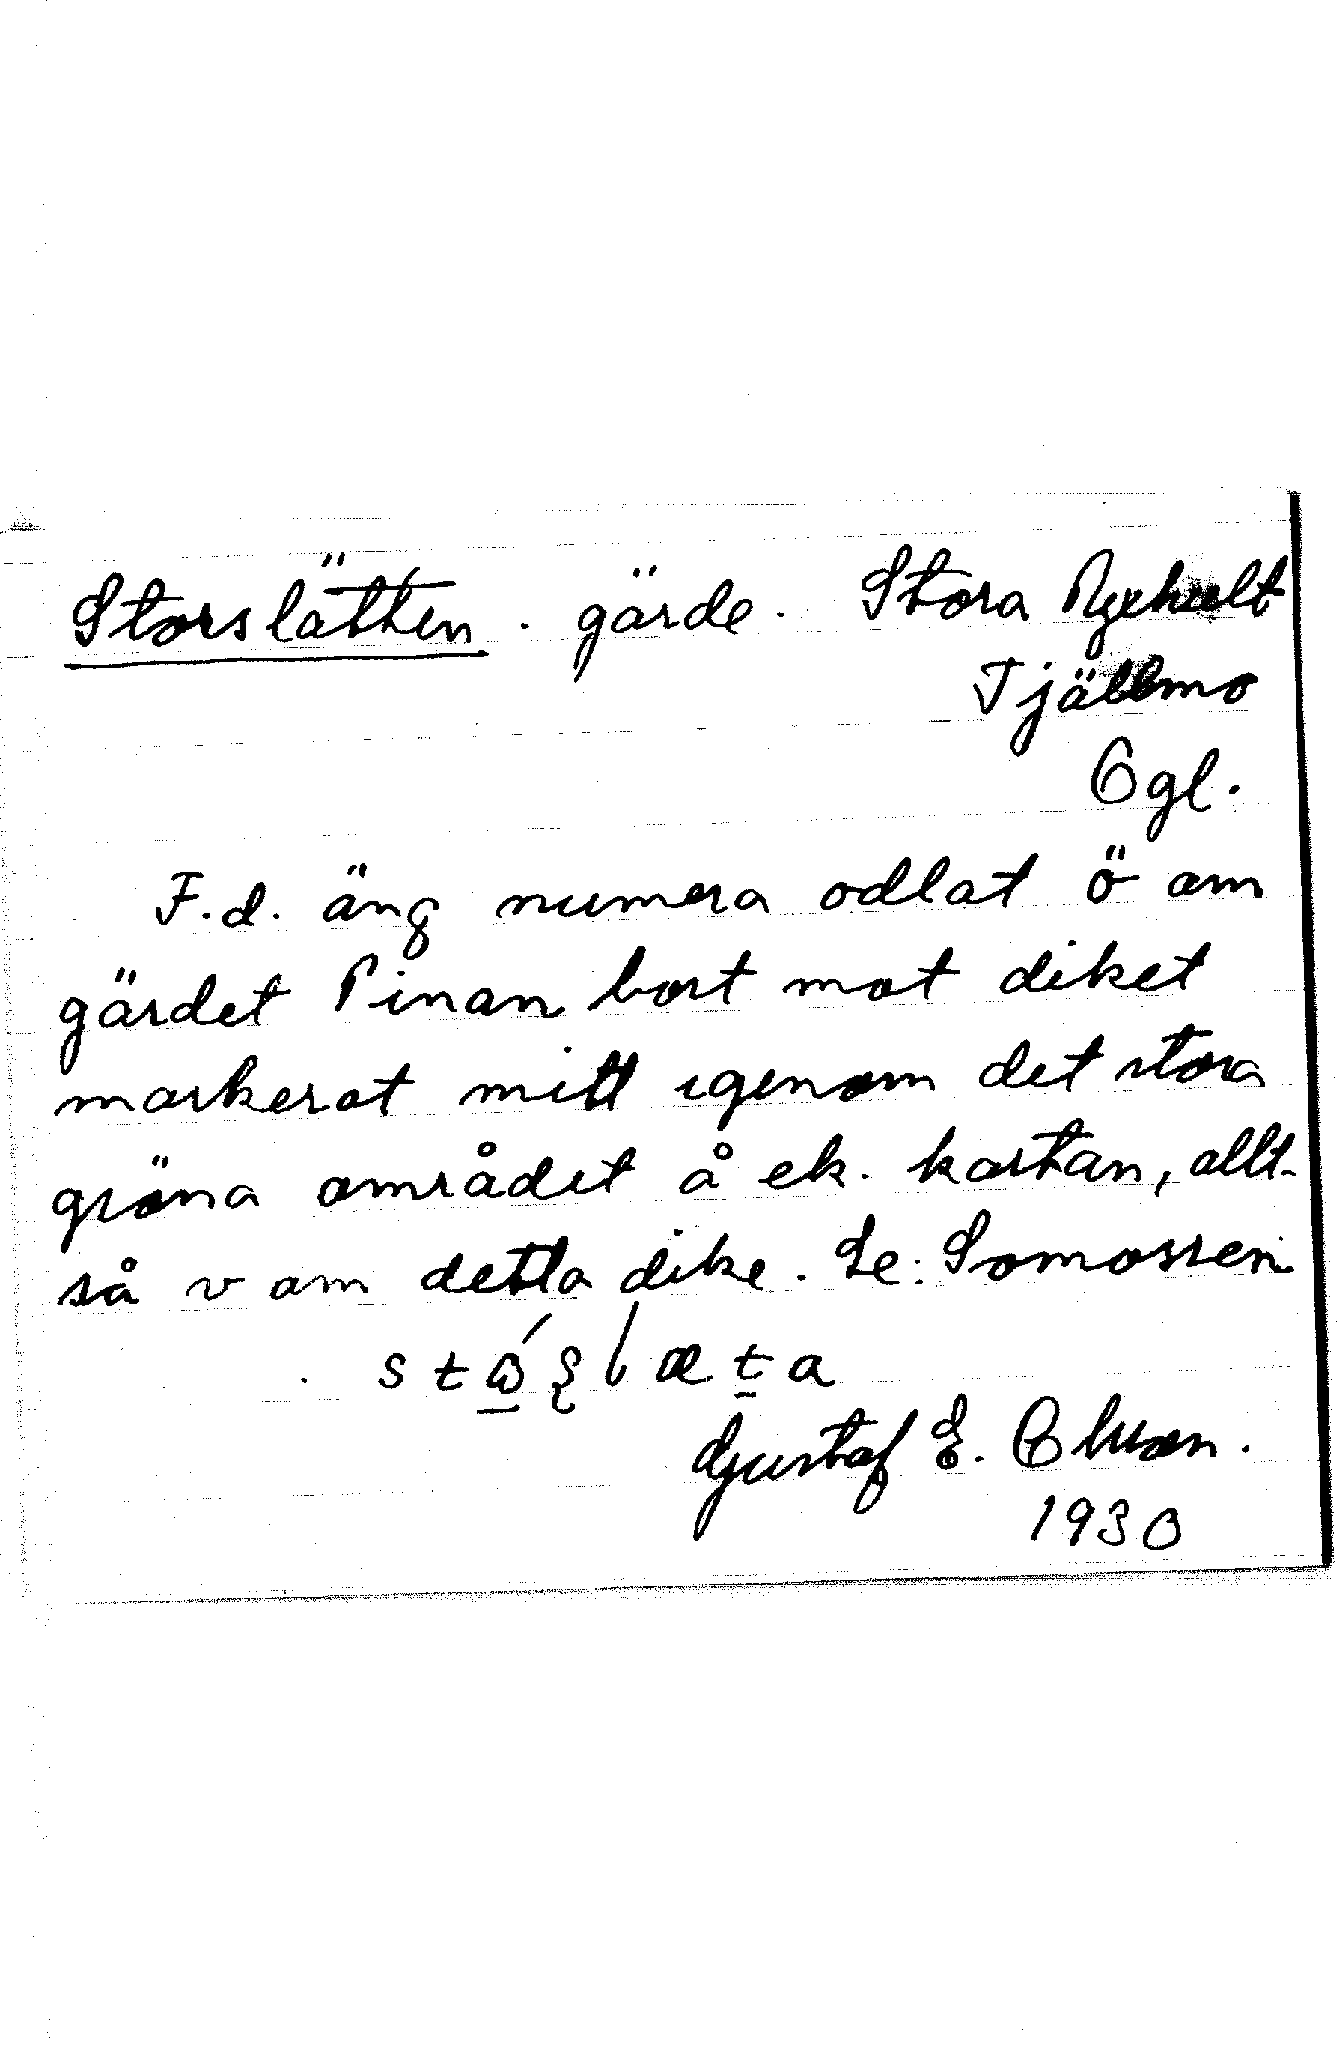 Storslätten. gärde. Stora Ryckelt
Tjällmo
Ögl.
F.d. äng numera odlat ö om
gärdet Pinan bort mot diket
markerat mitt igenom det stora
gröna området å ek. kartan, allt-
så v om detta dike. Se: Somossen
Gustaf E. Olsson.
1930